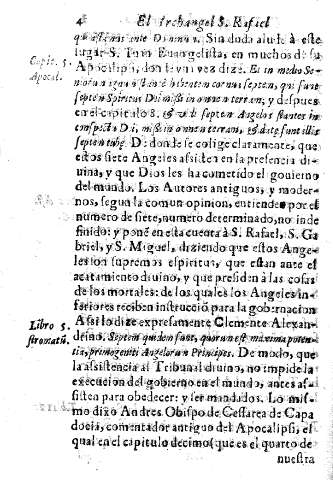 4 El Archangel S. Rafael
qui astamus ante Dominũ. Sin duda alude à este
lugar S. Iuan Euangelista, en muchos de su
Capit. 5. Apocalipsi, donde vna vez dize. Et in medio Se-
Apocal.
septem Spiritus Dei missi in omnem terram; y despues
en el capitulo 8. septem Angelos stantes in
conspectu Dei, missi in omnem terram, & datę sunt illis
septem tubę. De donde se colige claramente, que
estos siete Angeles assisten en la presencia di-
uina, y que Dios les ha cometido el gouierno
del mundo. Los Autores antiguos, y moder-
nos, segun la comun opinion, entienden por el
numero de siete, numero determinado, no inde
finido: y ponẽ en esta cuenta à S. Rafael, S. Ga
briel, y S. Miguel, diziendo que estos Ange-
les son supremos espiritus, que estan ante el
acatamiento diuino, y que presiden à las cosas
de los mortales: de los quales los Angeles in-
feriores reciben instrucciõ para la gobernacion
Libro 5. Assi lo dize expresamente Clemente Alexan-
stromatũ. drino. Septem quidem sunt, quorum est maxima poten-
tia, primogeniti Angelorum Principes. De modo, que
la assistencia al Tribunal diuino, no impide la
execucion del gobierno en el mundo, antes as-
sisten para obedecer: y ser mandados. Lo mis-
mo dixo Andres Obispo de Cesarea de Capa
docia, comentador antiguo del Apocalipsi, el
qual en el capitulo decimo (que es el quarto de
nuestra